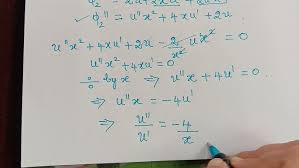 ϕ₂'' = u''x² + 4xu' + 2u
u''x² + 4xu' + 2u - 2/x² ux² = 0
u''x² + 4xu' = 0
÷ by x ⇒ u''x + 4u' = 0
⇒ u''x = -4u'
⇒ u''/u' = -4/x